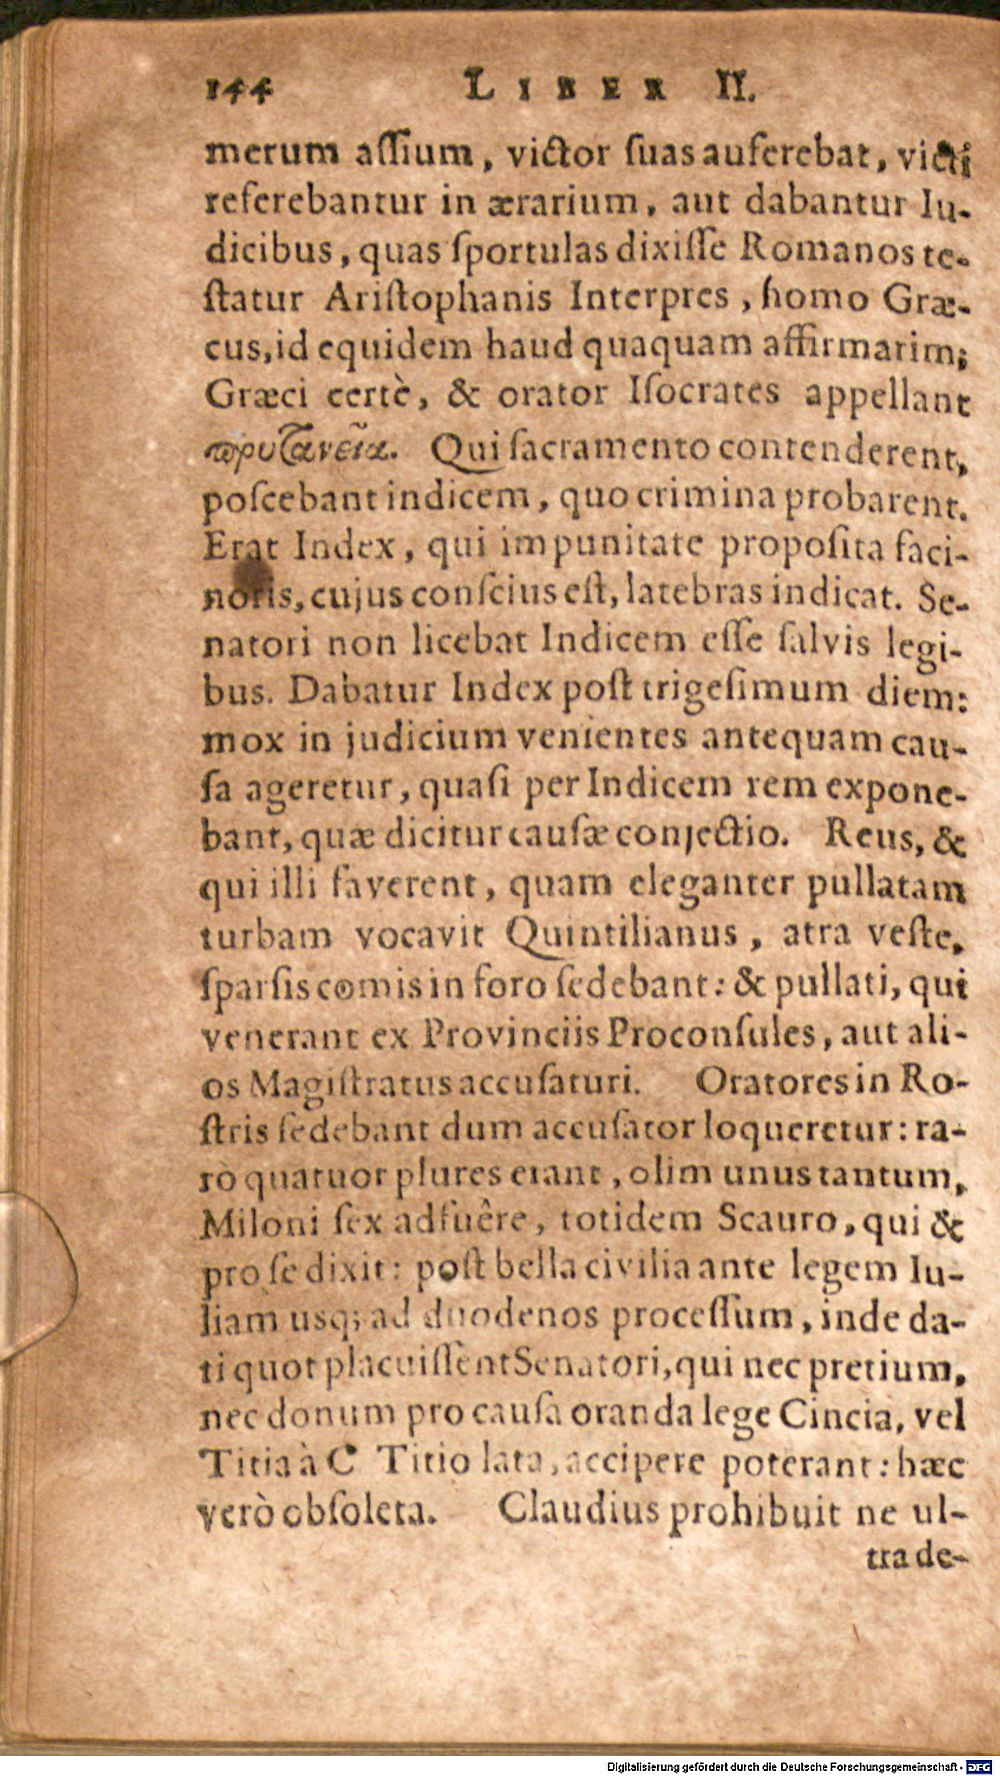 144 LIBER II.
merum aſſium, victor ſuas auferebat, victi
referebantur in ærarium, aut dabantur Iu-
dicibus, quas ſportulas dixiſſe Romanos te-
ſtatur Ariſtophanis Interpres, homo Græ-
cus, id equidem haud quaquam affirmarim;
Græci certè, & orator Iſocrates appellant
πρυτανεῖα. Qui ſacramento contenderent,
poſcebant indicem, quo crimina probarent.
Erat Index, qui impunitate propoſita faci-
noris, cujus conſcius eſt, latebras indicat. Se-
natori non licebat Indicem eſſe ſalvis legi-
bus. Dabatur Index poſt trigeſimum diem:
mox in judicium venientes antequam cau-
ſa ageretur, quaſi per Indicem rem expone-
bant, quæ dicitur cauſæ conjectio. Reus, &
qui illi faverent, quam eleganter pullatam
turbam vocavit Quintilianus, atra veſte,
ſparſis comis in foro ſedebant: & pullati, qui
venerant ex Provinciis Proconſules, aut ali-
os Magiſtratus accuſaturi. Oratores in Ro-
ſtris ſedebant dum accuſator loqueretur: ra-
rò quatuor plures erant, olim unus tantum,
Miloni ſex adfuêre, totidem Scauro, qui &
pro ſe dixit: poſt bella civilia ante legem Iu-
liam usq; ad duodenos proceſſum, inde da-
ti quot placuiſſènt Senatori, qui nec pretium,
nec donum pro cauſa oranda lege Cincia, vel
Titia à C Titio lata, accipere poterant: hæc
verò obſoleta. Claudius prohibuit ne ul-
tra de-
Digitalisierung gefördert durch die Deutsche Forschungsgemeinschaft - DFG